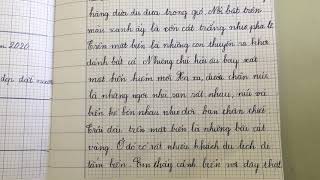 hàng dừa đu đưa trong gió. Nổi bật trên
màu xanh ấy là vón cát trắng như pha lê
Trên mặt biển là những con thuyền ra khơi
đánh bắt cá. Những chú hải âu bay xoát
mặt biển hiếm mồi. Xa xa, dưới chân núi
là những ngôi nhà san sát nhau, núi và
biển kề bên nhau như đôi bạn thân thiết
Trải dài trên mặt biển là những bãi cát
vàng. Ở đó có rất nhiều khách du lịch đi
tắm biển. Em thấy cảnh biển nơi đây thật
n 2020
đẹp đất nước